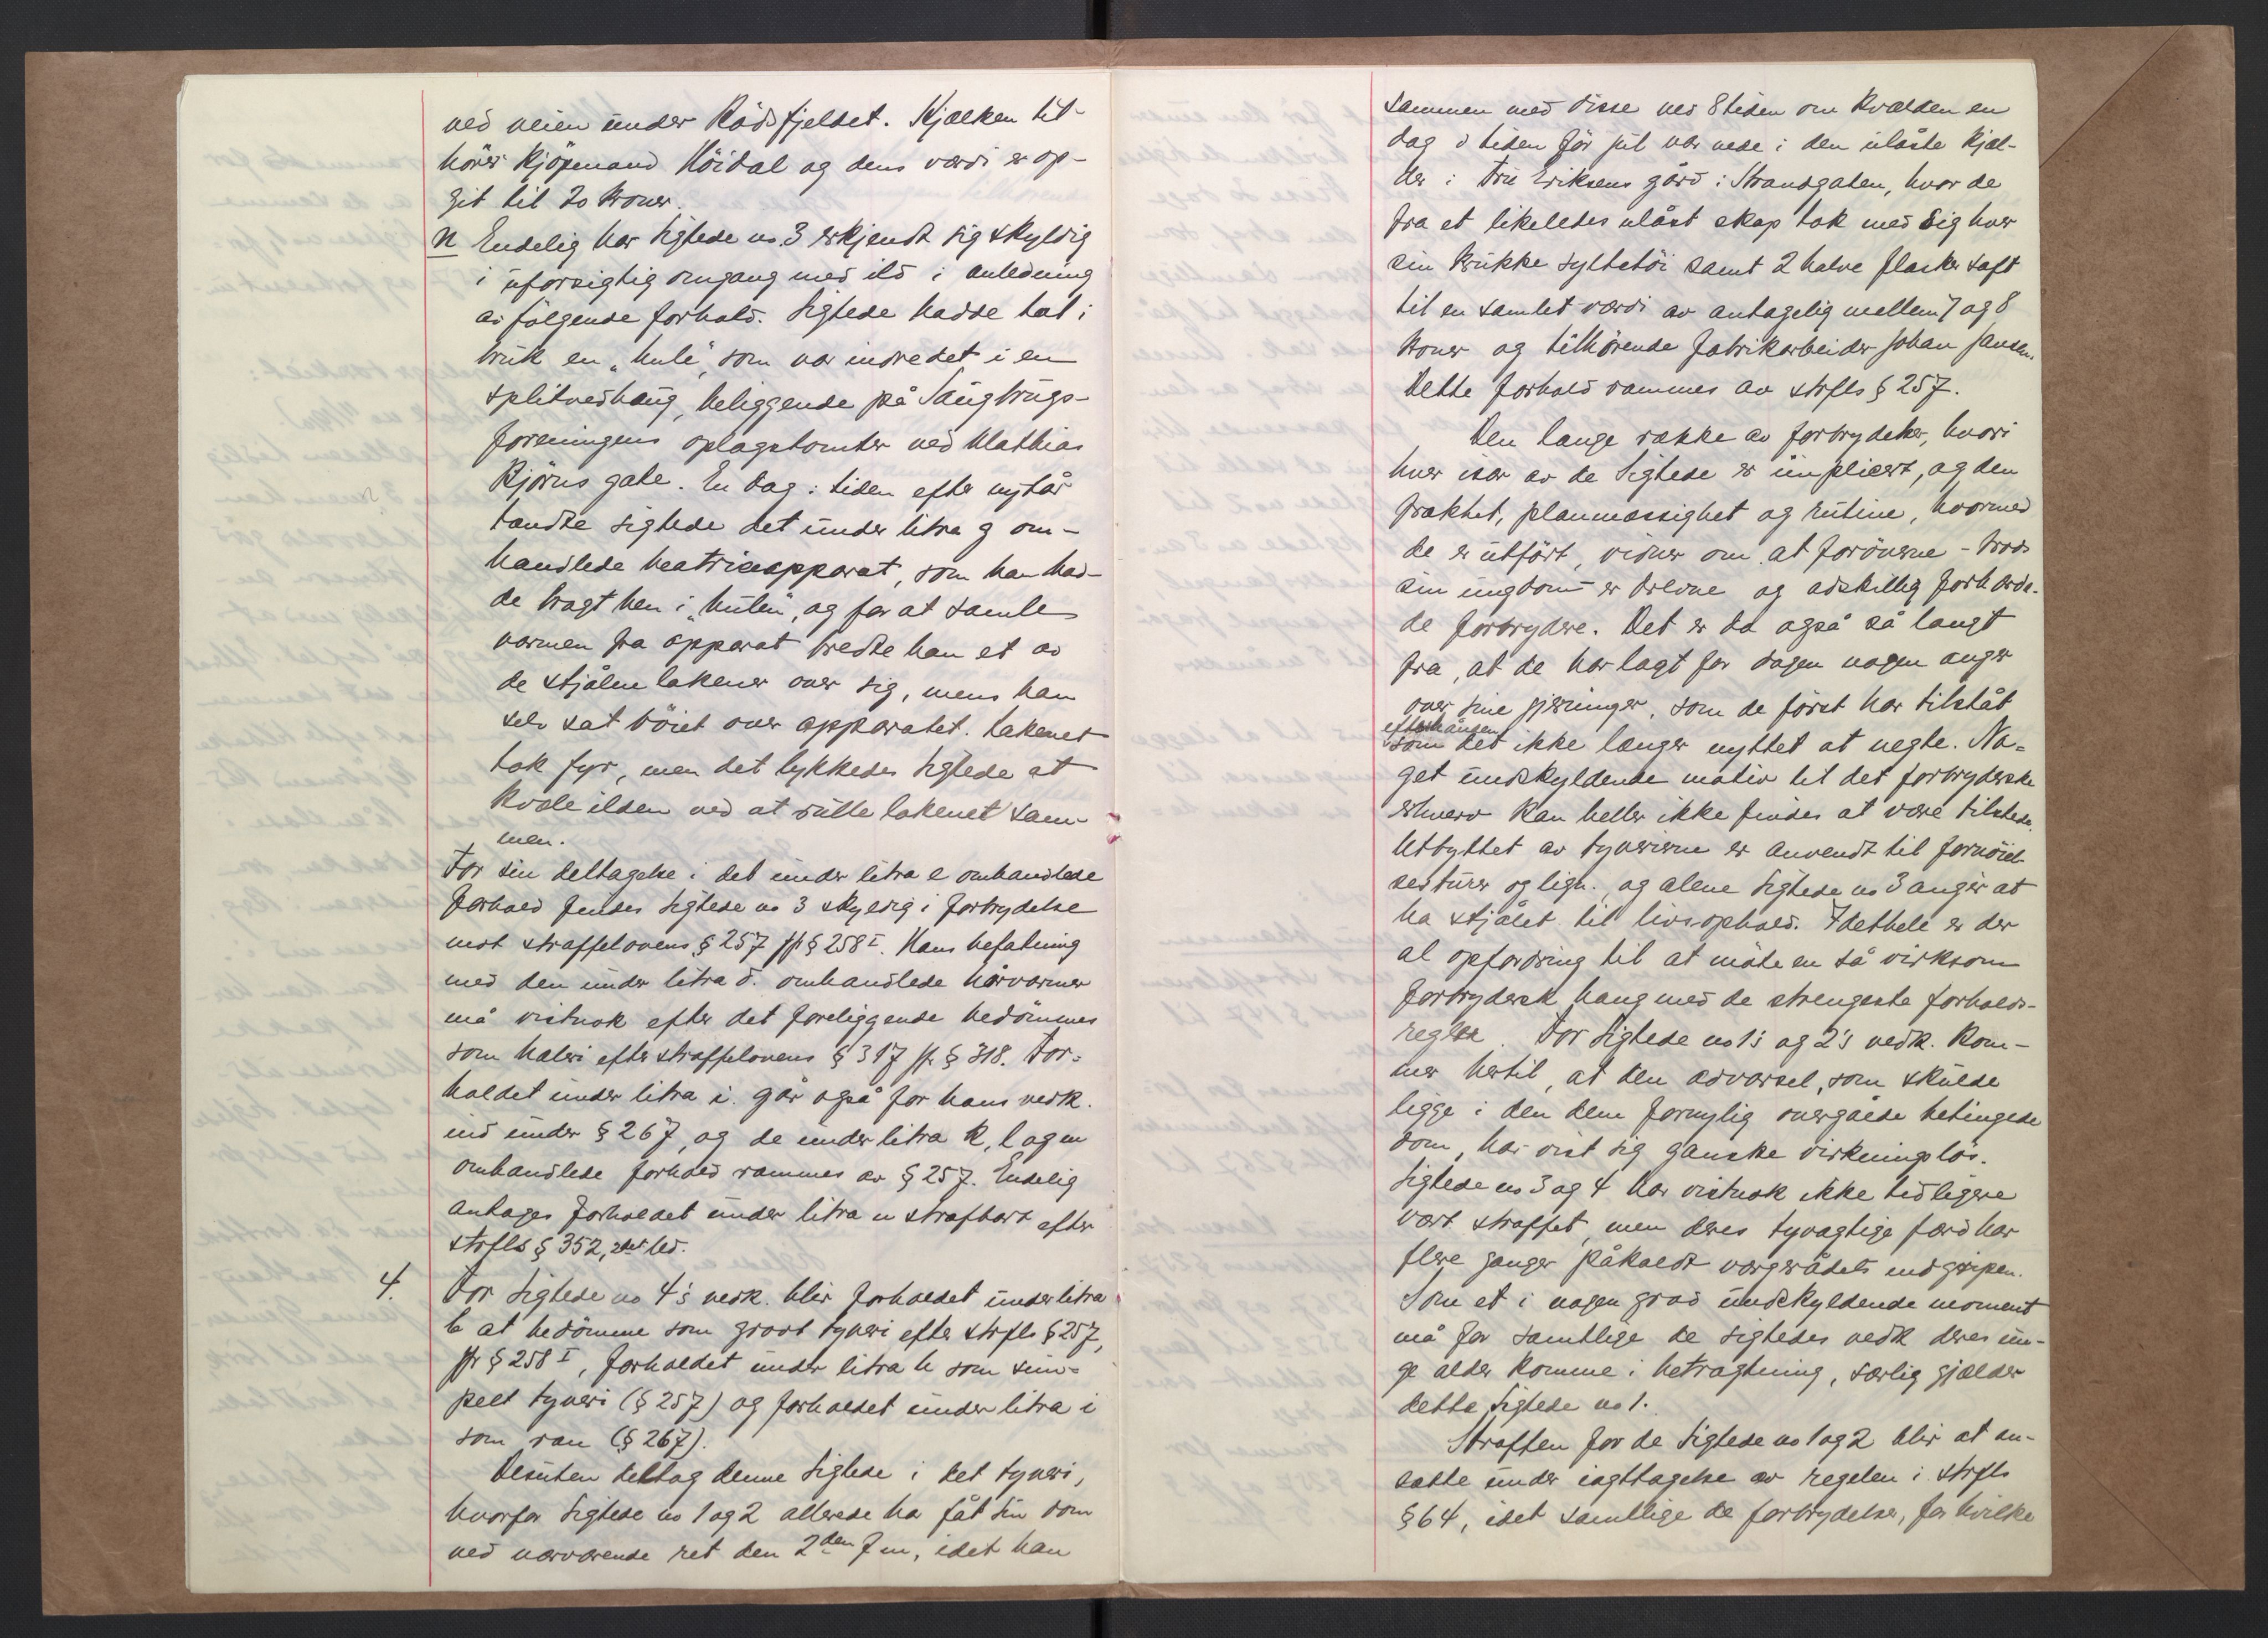 ved veien under Rådsfjeldet. Kjælken til-
hører kjöpmand Höidal og dens værdi er op-
git til 20 kroner.
n Endelig har Sigtede no 3 erkjendt sig skyldig
i uforsigtig omgang med ild i anledning
av fölgende forhold. Sigtede hadde tat i
bruk en "hule", som var indredet i en
splitvedhaug, beliggende på Saugbrugs-
foreningens oplagstomter ved Mathias
Bjørns gate. En dag i tiden efter nytår
tændte sigtede det under litra g om-
handlede beatriceapparat, som han had-
de bragt hen i "hulen", og for at samle
varmen fra apparat bredte han et av
de stjålne lakener over sig, mens han
selv sat böiet over apparatet. Lakenet
tok fyr, men det lykkedes Sigtede at
kvæle ilden ved at rulle lakenet sam-
men.
For sin deltagelse i det under litra e omhandlede
forhold findes Sigtede no 3 skyldig i forbrydelse
mot straffelovens § 257 jfr § 258 I. Hans befatning
med den under litra d. omhandlede hårvarmer
må vistnok efter det foreliggende bedömmes
som hæleri efter straffelovens § 317 jfr. § 318. For-
holdet under litra i. går også for hans vedk.
ind under § 267, og de under litra k, l og m
omhandlede forhold rammes av § 257. Endelig
antages forholdet under litra n strafbart efter
strfls § 352, 2det led.
4. For Sigtede no 4's vedk. blir forholdet under litra
b at bedömme som grovt tyveri efter strfls § 257,
jfr § 258 I, forholdet under litra h som sim-
pelt tyveri (§ 257) og forholdet under litra i
som ran (§ 267).
Desuten deltog denne Sigtede i det tyveri,
hvorfor Sigtede no 1 og 2 allerede har fåt sin dom
ved nærværende ret den 2den f m, idet han
sammen med disse ved 8 tiden om kvælden en
dag i tiden før jul var nede i den ulåste kjæl-
der i Fru Eriksens gård i Strandgaten, hvor de
fra et likeledes ulåst skap tok med sig hver
sin krukke syltetöi samt 2 halve flasker saft
til en samlet værdi av antagelig mellem 7 og 8
kroner og tilhörende fabrikarbeider Johan Jansen.
Dette forhold rammes av strfls § 257.
Den lange række av forbrydelser, hvori
hver især av de Sigtede er implicert, og den
frækhet, planmæssighet og rutine, hvormed
de er utfört, vidner om at foröverne - trods
sin ungdom - er drevne og adskillig forhærde-
de forbrydere. Det er da også så langt
fra, at de har lagt for dagen nogen anger
over sine gjerninger, som de först har tilståt
efterhånden
som det ikke længer nyttet at negte. No-
get undskyldende motiv til det forbryderske
erhverv kan heller ikke findes at være tilstede.
Utbyttet av tyverierne er anvendt til fornöiel-
sesturer og lign., og alene Sigtede no 3 angir at
ha stjålet til livsophold. Idethele er der
al opfordring til at möte en så virksom
forbrydersk hang med de strengeste forholds-
regler. For Sigtede no 1's og 2's vedk. kom-
mer hertil, at den advarsel, som skulde
ligge i den dem fornylig overgåede betingede
dom, har vist sig ganske virkningslös.
Sigtede no 3 og 4 har vistnok ikke tidligere
vært straffet, men deres tyvagtige færd har
flere ganger påkaldt vergerådets indgripen.
Som et i nogen grad undskyldende moment
må for samtlige de sigtedes vedk deres un-
ge alder komme i betragtning, særlig gjælder
dette Sigtede no 1.
Straffen for de Sigtede no 1 og 2 blir at an-
sætte under iagttagelse av regelen i strfls
§ 64, idet samtlige de forbrydelser, for hvilke